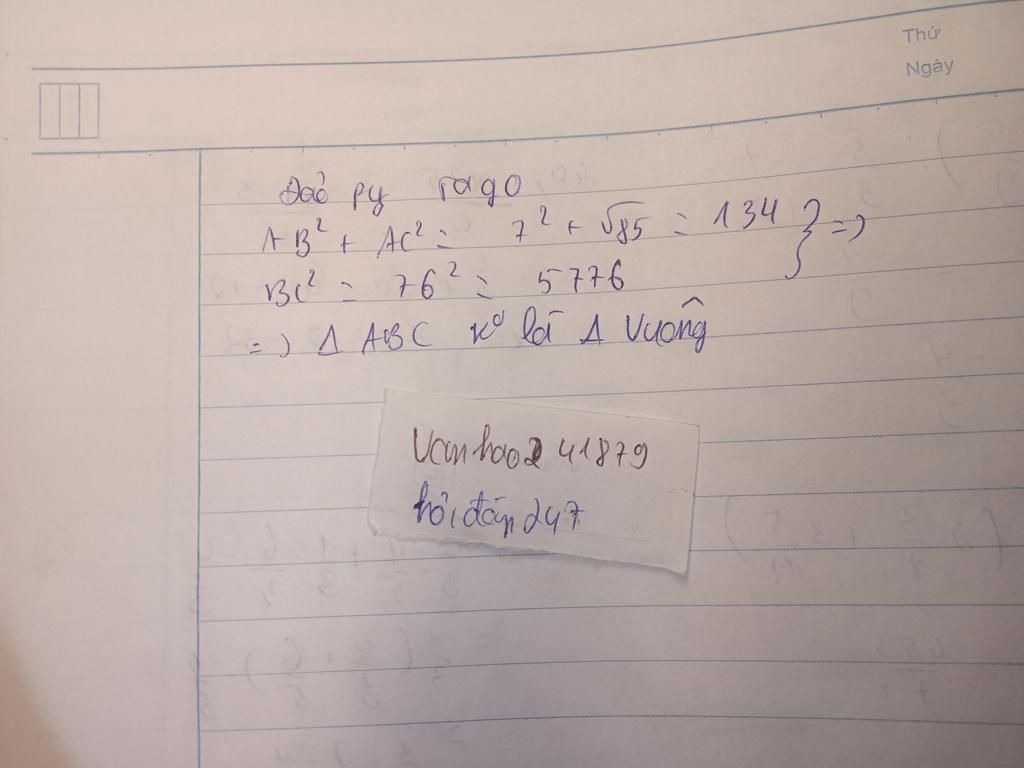 Thứ
Ngày
Đảo py tago
AB² + AC² = 7² + √85 = 134 } =)
BC² = 76² = 5776
=) Δ ABC ko là Δ Vuông
Vanhao241879
hỏi đáp 247